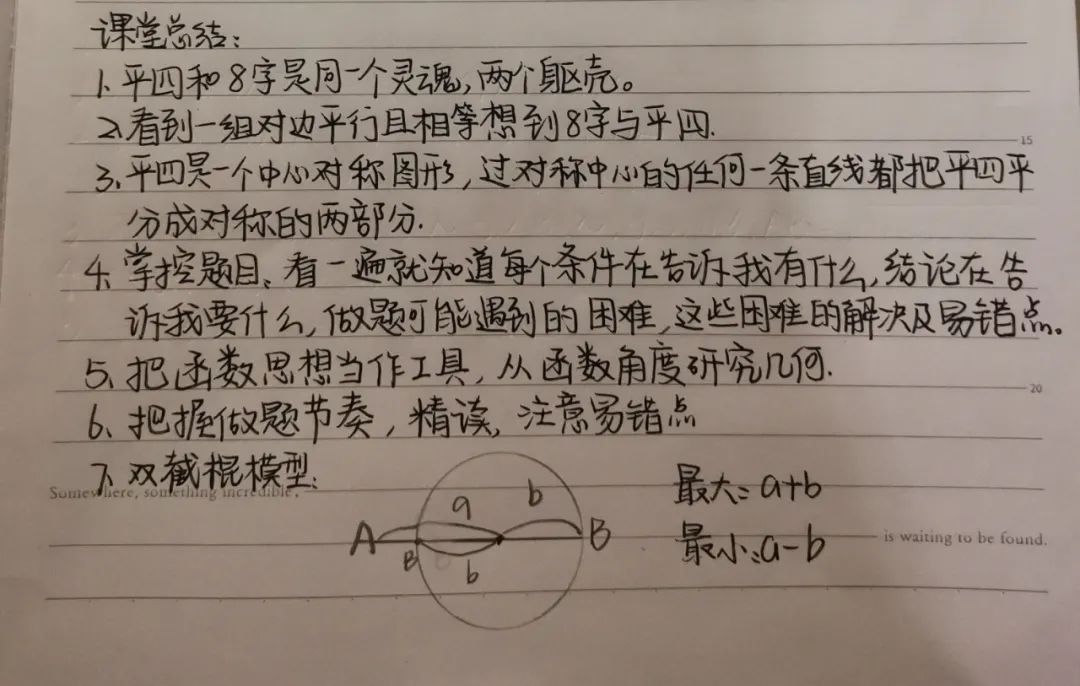 课堂总结:
1、平四和8字是同一个灵魂,两个躯壳。
2、看到一组对边平行且相等想到8字与平四.
15
3、平四是一个中心对称图形,过对称中心的任何一条直线都把平四平
分成对称的两部分.
4、掌控题目、看一遍就知道每个条件在告诉我有什么,结论在告
诉我要什么,做题可能遇到的困难,这些困难的解决及易错点。
5、把函数思想当作工具,从函数角度研究几何.
20
6、把握做题节奏,精读,注意易错点
7、双截棍模型:
Somewhere, something incredible,
a b
最大:a+b
A B B
is waiting to be found.
b
最小:a-b